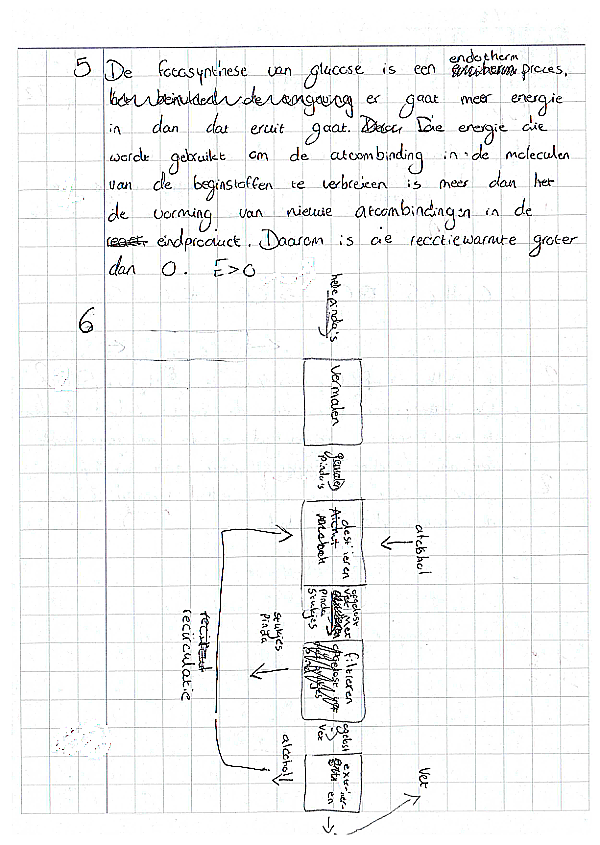 5 De fotosynthese van glucose is een endotherm proces,
er gaat meer energie
in dan dat eruit gaat. Die energie die
wordt gebruikt om de atoombinding in de moleculen
van de beginstoffen te verbreken is meer dan het
de vorming van nieuwe atoombindingen in de
eindproduct. Daarom is de reactiewarmte groter
dan 0. E>0
6
hele pinda's
Vermalen
gemalen
pinda's
alcohol
destileren
opgelost
vet met
pinda
stukjes
filtreren
stukjes
pinda
opgelost
vet
extra-
en
alcohol
Vet
recirculatie